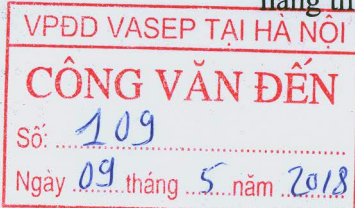 năng th
VPĐD VASEP TẠI HÀ NỘI
CÔNG VĂN ĐẾN
Số: 109
Ngày 09 tháng 5 năm 2018